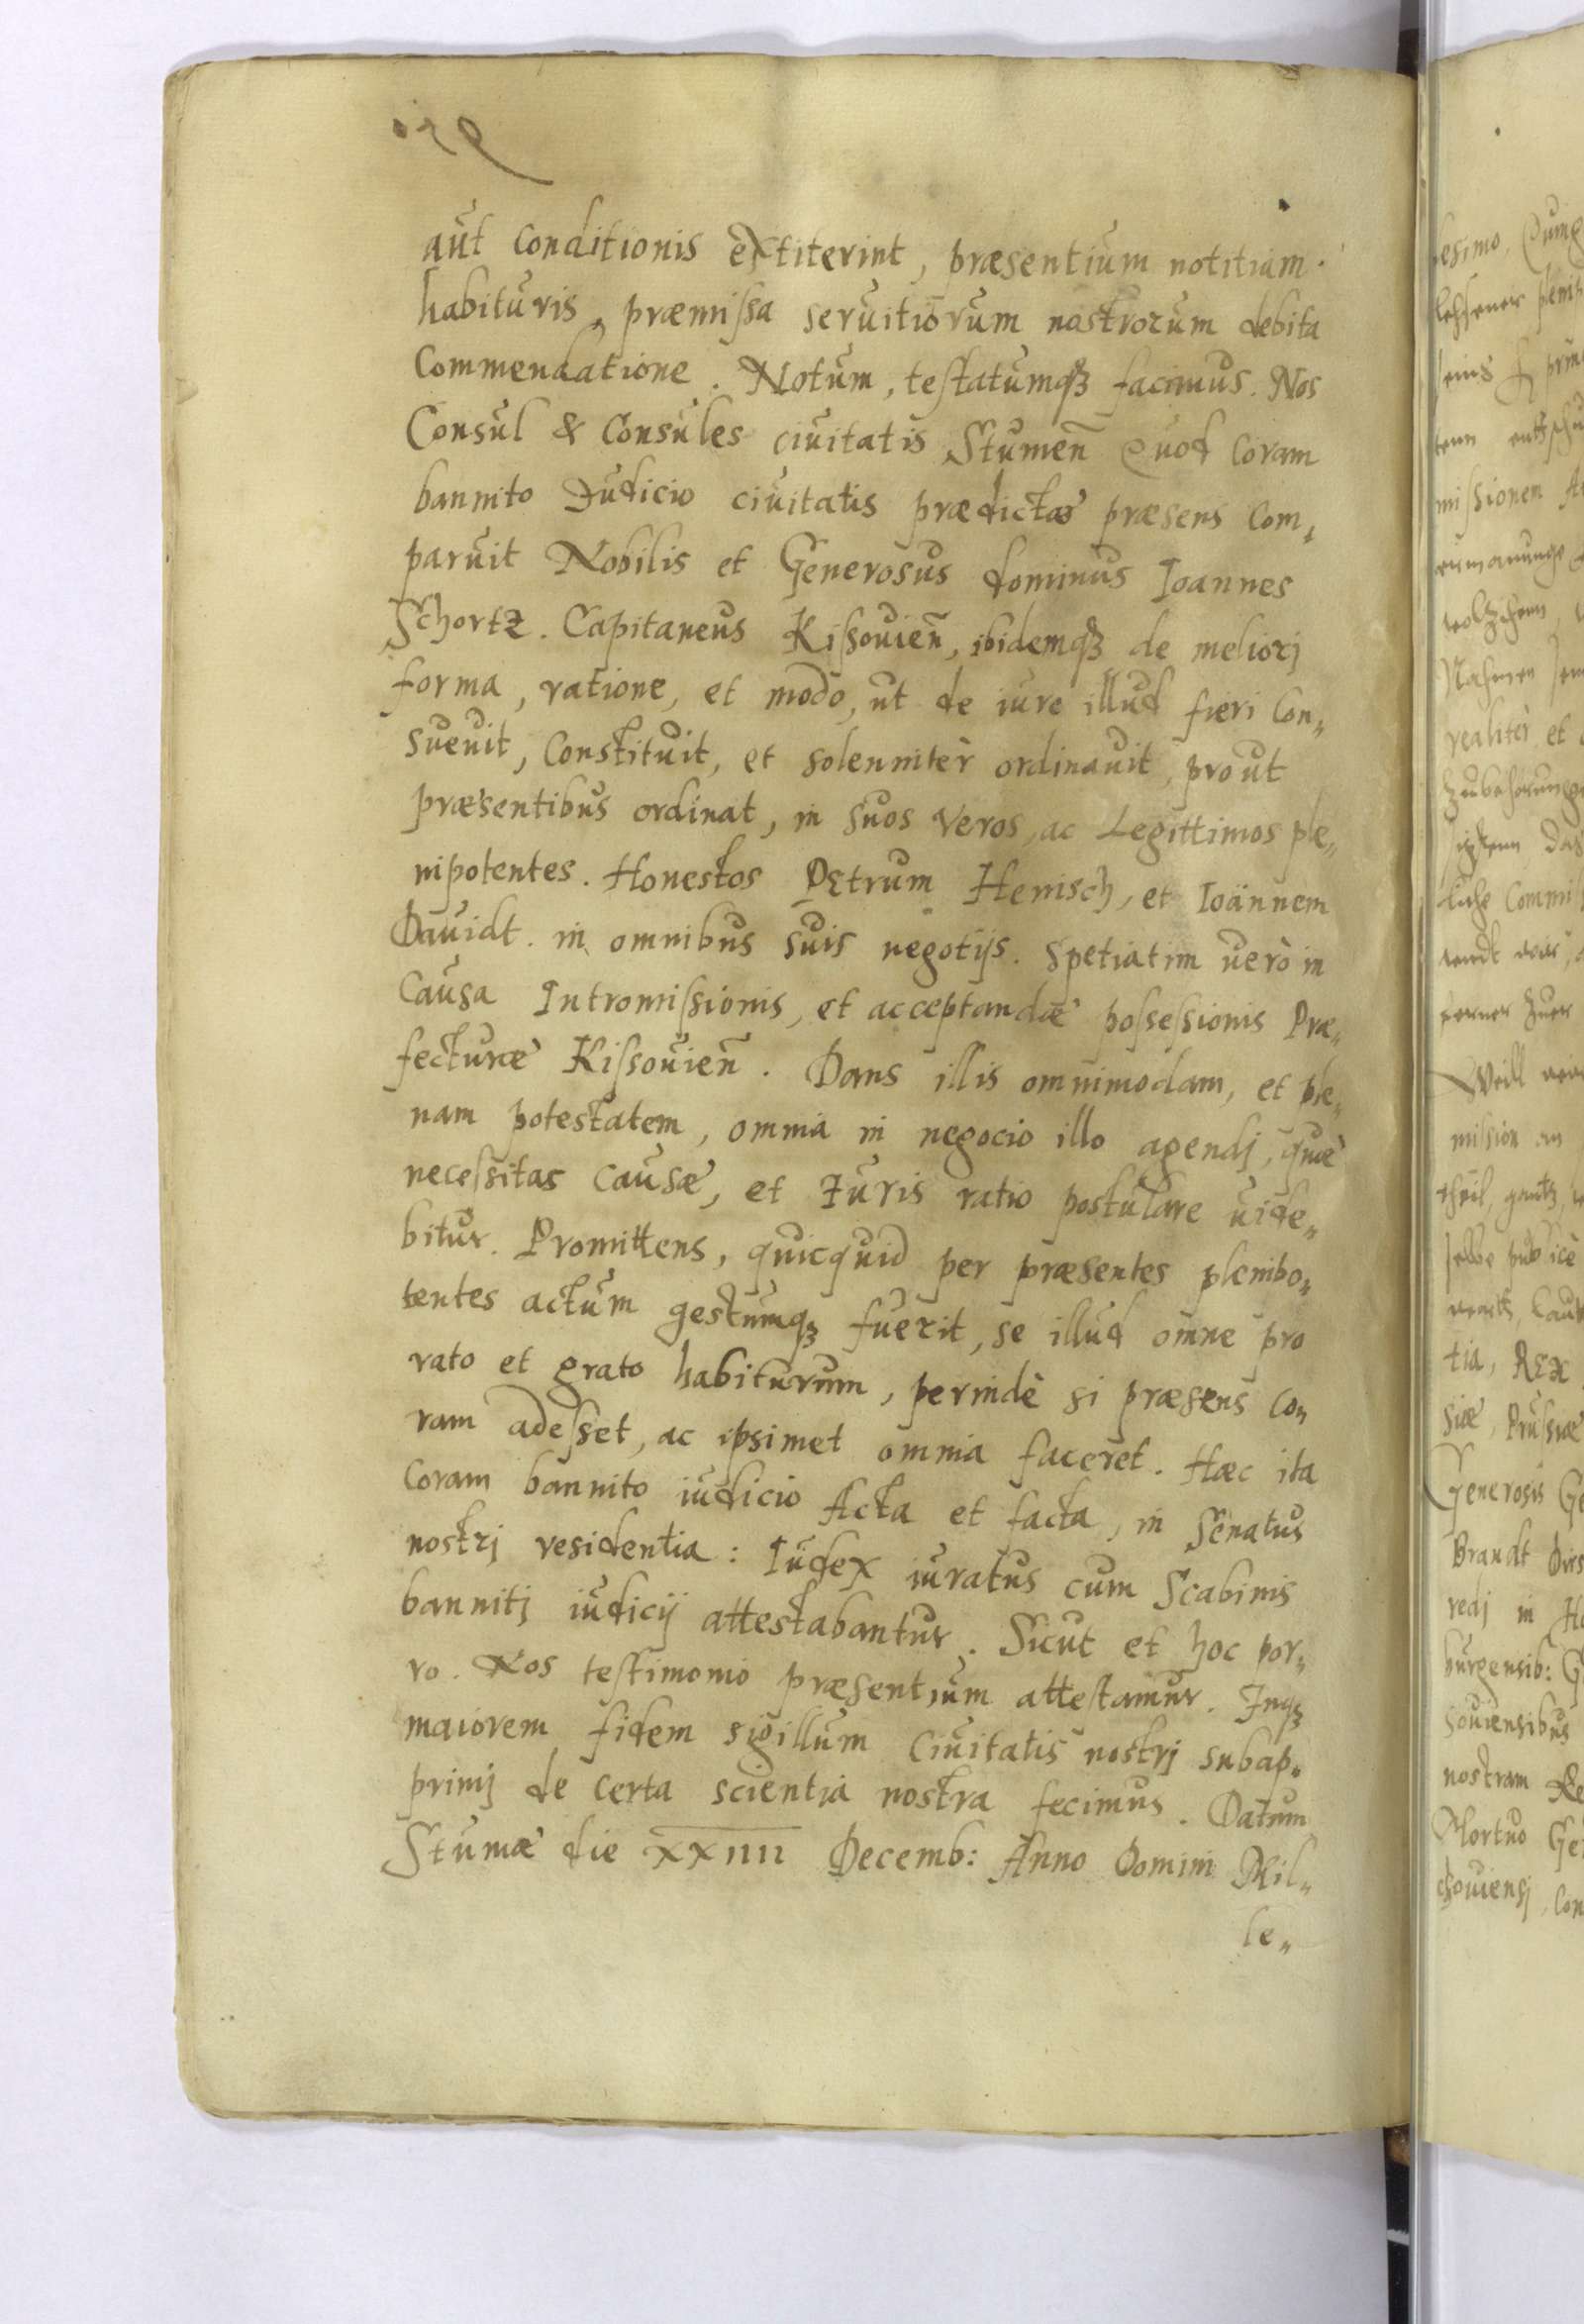 aut conditionis extiterint, præsentium notitiam
habituris, præmissa seruitiorum nostrorum debita
Commendatione. Notum, testatumqȝ facimus. Nos
Consul & Consules ciuitatis Stumeñ Quod Coram
bannito Iudicio ciuitatis prædictæ præsens Com„
paruit Nobilis et Generosus dominus Ioannes
Schortz. Capitaneus Kissouieñ, ibidemqȝ de meliorj
forma, ratione, et modo, ut de iure illud fieri Con„
sueuit, Constituit, et solenniter ordinauit, prout
præsentibus ordinat, in suos veros, ac Legittimos ple„
nipotentes. Honestos Petrum Henisch, et Ioannem
Dauidt. in omnibus suis negotijs. Spetiatim uerò in
Causa Intromissionis, et acceptandæ possessionis Præ„
fecturæ Kissouieñ. Dans illis omnimodam, et ple„
nam potestatem, omnia in negocio illo agendj, quæ
necessitas causæ, et Iuris ratio postulare uide„
bitur. Promittens, quicquid per præsentes plenibo„
tentes actum gestumqȝ fuerit, se illud omne pro
rato et grato habiturum, perindè si præsens Co„
ram adesset, ac ipsimet omnia faceret. Hæc ita
Coram bannito iudicio Acta et facta, in Senatus
nostrj residentia: Iudex iuratus cum Scabinis
bannitj iudicij attestabantur. Sicut et hoc por„
ro. Nos testimonio præsentium attestamur. Inqȝ
maiorem fidem sigillum Ciuitatis nostrj subap„
primj de certa scientia nostra fecimus. Datum
Stumæ die XXIIII Decemb: Anno Domini Mil„
le„
lesimo
missionen
realiter et
liche Commis
mission an
theil, gantz,
tia, Rex
siæ, Prussiæ
Generosis Ge
Brandt
redj in
burgensib: G
souiensibus
nostram
Mortuo Ge
souiensj, Con